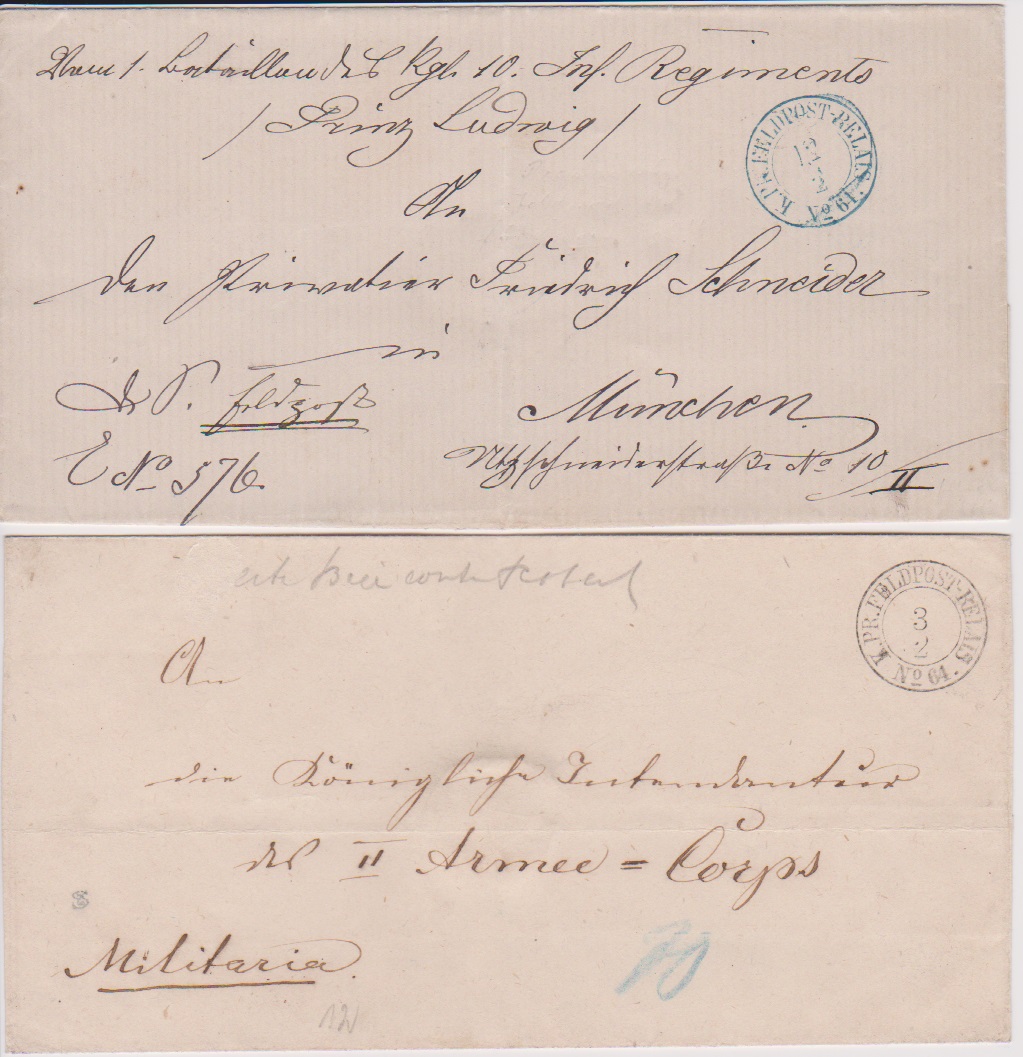 Vom 1. Bataillon des Kgl. 10. Inf. Regiments
/ Prinz Ludwig /
K. PR. FELDPOST-RELAIS. No 61.
12
2
An
den Privatier Friedrich Schneider
in
d. S. Feldpost
München
E No 576.
Utzschneiderstraße No 10/II
K. PR. FELDPOST-RELAIS. No 64.
3
2
An
die Königliche Intendantur
des II Armee=Corps
Militaria.